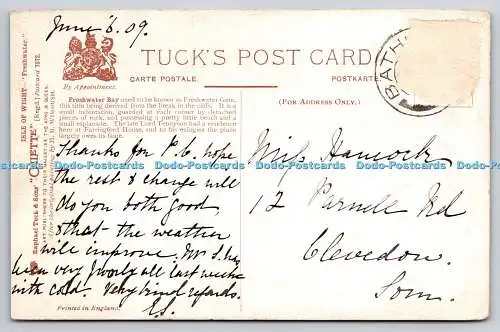 June 6. 09.
TUCK'S POST CARD
CARTE POSTALE.
POSTKARTE
By Appointment.
(FOR ADDRESS ONLY.)
BATH
Freshwater Bay used to be known as Freshwater Gate,
this title being derived from the break in the cliffs. It is a
small inlet, guarded at each corner by detached
pieces of rock, and possessing a pretty little beach and a
small esplanade. The late Lord Tennyson had a residence
here at Farringford House, and to his eulogies the place
largely owes its fame.
ISLE OF WIGHT.— "Freshwater."
Raphael Tuck & Sons' "OILETTE" (Regd.) Postcard
Thanks for P.C. hope
the rest & change will
do you both good,
& that the weather
will improve. Mr S. has
been very poorly all last week
with cold. Very kind regards.
E.S.
Printed in England.
Miss Hancock
12 Parnell Rd
Clevedon.
Som.
Dodo-Postcards Dodo-Postcards Dodo-Postcards Dodo-Postcards